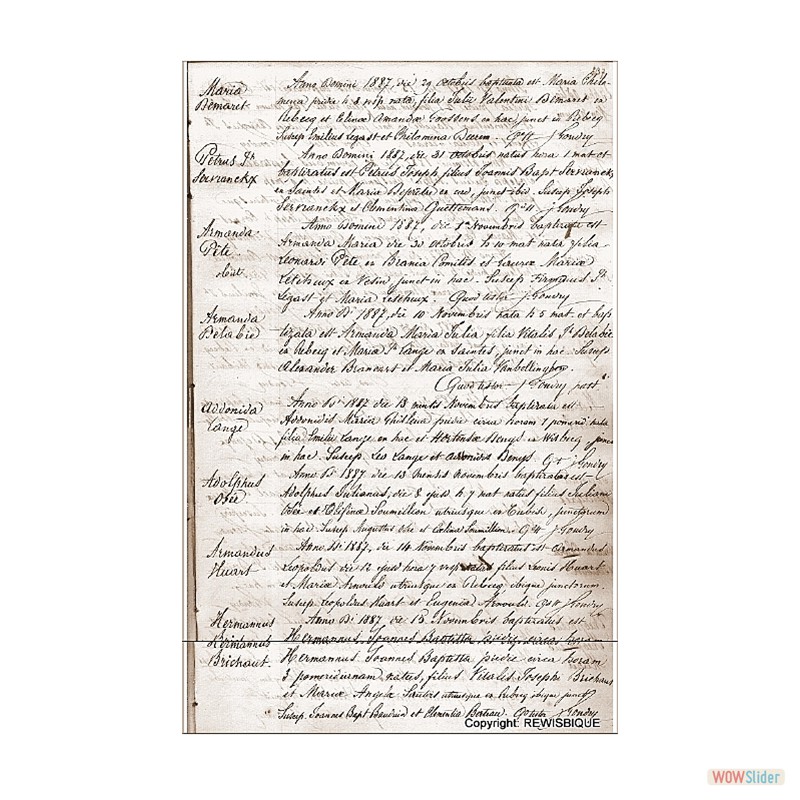 Maria
Demaret
Anno Domini 1887, die 29 octobris baptizata est Maria Philo-
mena pridie h 8 vesp nata, filia Julii Valentini Demaret ex
Rebecq et Elinae Amandae Goossens ex hac, junct in Rebecq
Suscep Emilius Legast et Philomena J Gondry
Petrus Jh
Servranckx
Anno Domini 1887, die 31 octobris natus hora 1 mat et
baptizatus est Petrus Joseph filius Joannis Bapt Servranckx
ex Saintes et Maria ex ead, junct ibid. Suscep Joseph
Servranckx et Clementina J Gondry
Armanda
Pète
obiit
Anno Domini 1887, die 1 Novembris baptizata est
Armanda Maria die 30 octobris h 10 mat nata filia
Leonardi Pète ex Brania Comitis et Laurae Mariae
Letcheux ex junct in hac. Suscep Firminus Jh
Legast et Maria Letcheux. Quod testor J Gondry
Armanda
Delabie
Anno Di 1887, die 10 Novembris nata h 5 mat et bap
tizata est Armanda Maria Julia filia Vitalis Jh Delabie
ex Rebecq et Maria Jh Lange ex Saintes, junct in hac. Suscep
Alexander Brancart et Maria Julia Vanbellinghen.
Quod testor J Gondry past
Adonida
Lange
Anno Di 1887 die 13 mensis Novembris baptizata est
Adonidis Maria Ghislena pridie circa horam 1 pomerid nata
filia Emilii Lange ex hac et Hortensa Denys ex Wisbecq junct
in hac. Suscep Leo Lange et Adonida Denys. Q t J Gondry
Adolphus
Obée
Anno Di 1887 die 13 mensis novembris baptizatus est
Adolphus Julianus, die 8 ejusd h 7 mat natus filius Juliani
Obée et Soumillion utriusque ex Tubeck, junctorum
in hac Suscep Augustus Obée et Soumillion. J Gondry
Armandus
Huart
Anno Di 1887, die 14 Novembris baptizatus est Armandus
Leopoldus die 12 ejusd hora 7 vesp natus filius Leonis Huart
et Mariae Arnould utriusque ex Rebecq ibique junctorum
Suscep Leopoldus Huart et Eugenia Arnould. J Gondry
Hermannus
Anno Di 1887 die 15 Novembris baptizatus est
Hermannus
Hermannus Joannes Baptista pridie circa hora
Brichaut.
Hermannus Joannes Baptista pridie circa horam
3 pomeridianam natus, filius Vitalis Josephi Brichaut
et Mariae Angela utriusque ex Rebecq ibique junct
Suscep. Joannes Bapt Bauduin et Clementia Berteau. Q testor J Gondry
Copyright: REWISBIQUE
WOWSlider